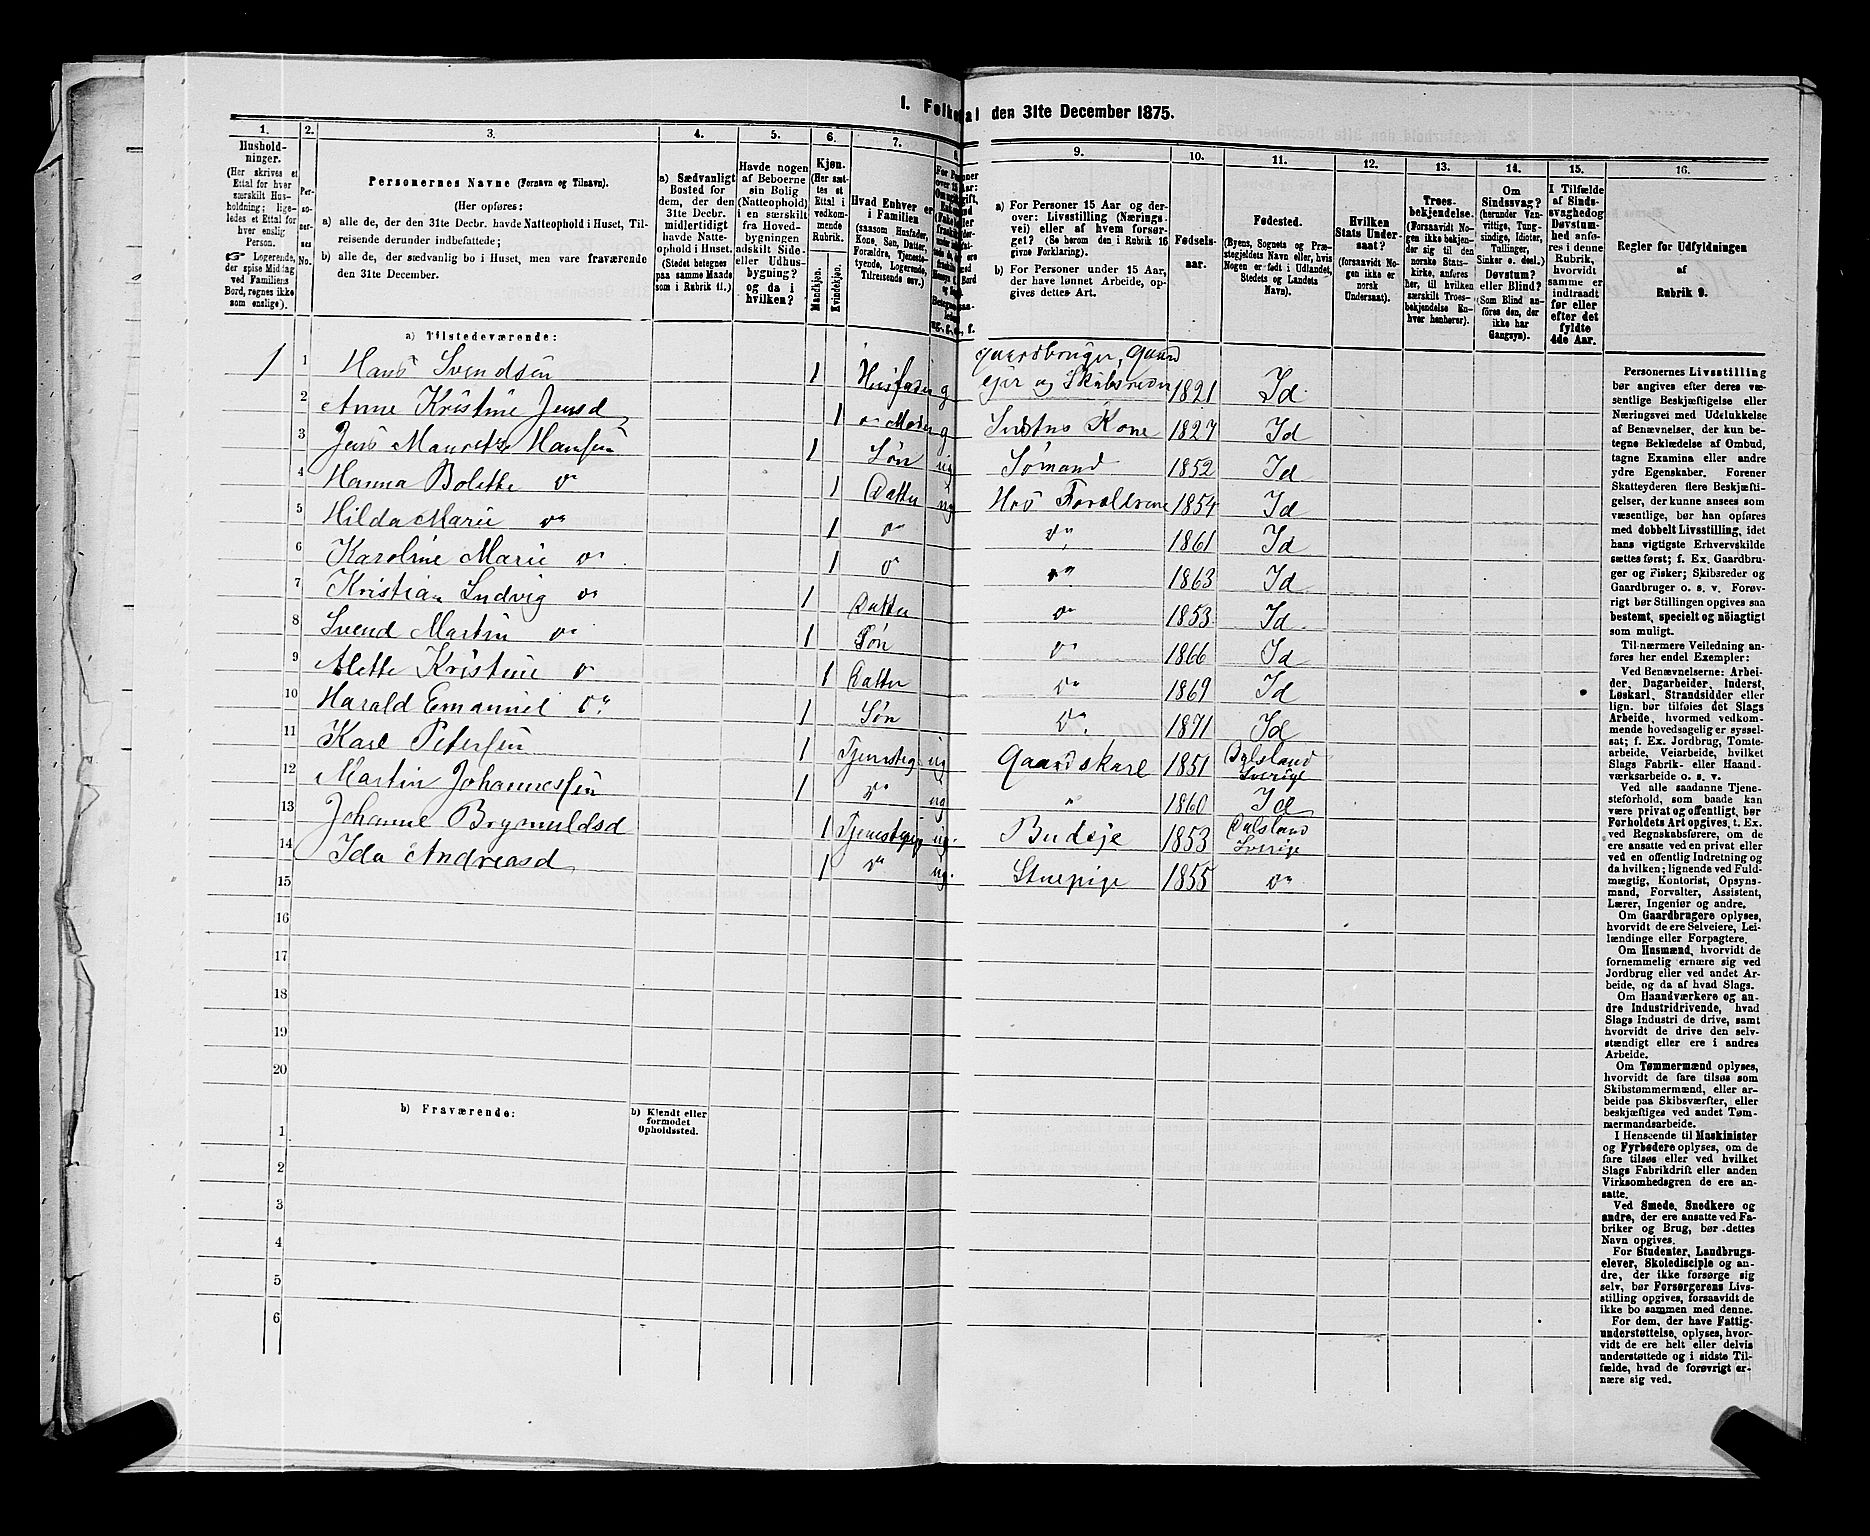 1. Folketal den 31te December 1875.
1. 2. 3. 4. 5. 6. 7. 8. 9. 10. 11. 12. 13. 14. 15. 16.
Hushold-
ninger.
(Her skrives et
Ettal for hver
særskilt Hus-
holdning; lige-
ledes et Ettal for
hver enslig
Person.
☞ Logerende,
der spise Middag
ved Familiens
Bord, regnes ikke
som enslige).
Per-
so-
ner-
nes
No.
Personernes Navne (Fornavn og Tilnavn).
(Her opføres:
a) alle de, der den 31te Decbr. havde Natteophold i Huset, Til-
reisende derunder indbefattede;
b) alle de, der sædvanlig bo i Huset, men vare fraværende
den 31te December.
a) Sædvanligt
Bosted for
dem, der den
31te Decbr.
midlertidigt
havde Natte-
ophold i Huset.
(Stedet betegnes
paa samme Maade
som i Rubrik 11.)
Havde nogen
af Beboerne
sin Bolig
(Natteophold)
i en særskilt
fra Hoved-
bygningen
adskilt Side-
eller Udhus-
bygning?
og da i
hvilken?
Kjøn.
(Her sæt-
tes et
Ettal i
vedkom-
mende
Rubrik.
Mandkjøn.
Kvindekjøn.
Hvad Enhver er
i Familien
(saasom Husfader,
Kone, Søn, Datter,
Forældre, Tjeneste-
tyende, Logerende,
Tilreisende osv.)
a) For Personer 15 Aar og der-
over: Livsstilling (Nærings-
vei) eller af hvem forsør-
get? (Se herom den i Rubrik 16
givne Forklaring).
b) For Personer under 15 Aar,
der have lønnet Arbeide, op-
gives dettes Art.
Fødsels-
aar.
Fødested.
(Byens, Sognets og Præ-
stegjeldets Navn eller, hvis
Nogen er født i Udlandet,
Stedets og Landets
Navn).
Hvilken
Stats Under-
saat?
(forsaavidt No-
gen ikke er
norsk
Undersaat).
Troes-
bekjendelse.
(Forsaavidt No-
gen ikke bekjen-
der sig til den
norske Stats-
kirke, anføres
her, til hvilken
særskilt Troes-
bekjendelse En-
hver henhører).
Om
Sindssvag?
(herunder Van-
vittige, Tung-
sindige, Idioter,
Tullinger,
Sinker o. desl.)
Døvstum?
eller Blind?
(Som Blind an-
føres den, der
ikke har
Gangsyn).
I Tilfælde
af Sinds-
svaghed og
Døvstum-
hed anfø-
res i denne
Rubrik,
hvorvidt
samme er
indtraadt
før eller
efter det
fyldte
4de Aar.
Regler for Udfyldningen
af
Rubrik 9.
a) Tilstedeværende:
1 1 Hans Svendsen 1 Husfader g Gaardbruger, Gaard
ejer og Skibsreder 1821 Id
2 Anne Kristine Jensd 1 Moder g Kone 1827 Id
3 Jens Mauritz Hansen 1 Søn ug Sømand 1852 Id
4 Hanna Bolette do 1 Datter ug Hos Forældrene 1854 Id
5 Hilda Marie do 1 do do 1861 Id
6 Karoline Marie do 1 do do 1863 Id
7 Kristian Ludvig do 1 Datter do 1853 Id
8 Svend Martin do 1 Søn do 1866 Id
9 Alette Kristine do 1 Datter do 1869 Id
10 Harald Emanuel do 1 Søn do 1871 Id
11 Karl Petersen 1 Tjenesteg ug Gaardskarl 1851 Dalsland
Sverige
12 Martin Johannessen 1 do ug " 1860 Id
13 Johanne Brymuldsd 1 Tjenestepige ug. Budeje 1853 Dalsland
Sverige
14 Ida Andreasd 1 do ug. Stuepige 1855 do
15
16
17
18
19
20
b) Fraværende:
b) Kjendt eller
formodet
Opholdssted.
1
2
3
4
5
6
Personernes Livsstilling
bør angives efter deres væ-
sentlige Beskjæftigelse eller
Næringsvei med Udelukkelse
af Benævnelser, der kun be-
tegne Beklædelse af Ombud,
tagne Examina eller andre
ydre Egenskaber. Forener
Skatteyderen flere Beskjæfti-
gelser, der kunne ansees som
væsentlige, bør han opføres
med dobbelt Livsstilling, idet
hans vigtigste Erhvervskilde
sættes først; f. Ex. Gaardbru-
ger og Fisker; Skibsreder og
Gaardbruger o. s. v. Forøv-
rigt bør Stillingen opgives saa
bestemt, specielt og nöiagtigt
som muligt.
Til nærmere Veiledning an-
føres her endel Exempler:
Ved Benævnelserne: Arbei-
der, Dagarbeider, Inderst,
Løskarl, Strandsidder eller
lign. bør tilføies det Slags
Arbeide, hvormed vedkom-
mende hovedsagelig er syssel-
sat; f. Ex. Jordbrug, Tomte-
arbeide, Veiarbeide, hvilket
Slags Fabrik- eller Haand-
værksarbeide o. s. v.
Ved alle saadanne Tjene-
steforhold, som baade kan
være privat og offentligt, bør
Forholdets Art opgives, t. Ex.
ved Regnskabsførere, om de
ere ansatte ved en privat eller
ved en offentlig Indretning og
da hvilken; lignende ved Fuld-
mægtig, Kontorist, Opsyns-
mand, Forvalter, Assistent,
Lærer, Ingeniør og andre.
Om Gaardbrugere oplyses,
hvorvidt de ere Selveiere, Lei-
lændinge eller Forpagtere.
Om Husmænd, hvorvidt de
fornemmelig ernære sig ved
Jordbrug eller ved andet Ar-
beide, og da af hvad Slags.
Om Haandværkere og an-
dre Industridrivende, hvad
Slags Industri de drive, samt
hvorvidt de drive den selv-
stændigt eller ere i andres
Arbeide.
Om Tømmermænd oplyses,
hvorvidt de fare tilsøs som
Skibstømmermænd, eller ar-
beide paa Skibsværfter, eller
beskjæftiges ved andet Tøm-
mermandsarbeide.
I Henseende til Maskinister
og Fyrbødere oplyses, om de
fare tilsøs eller ved hvilket
Slags Fabrikdrift eller anden
Virksomhedsgren de ere an-
satte.
Ved Smede, Snedkere og
andre, der ere ansatte ved Fa-
briker og Brug, bør dettes
Navn opgives.
For Studenter, Landbrugs-
elever, Skoledisciple og an-
dre, der ikke forsørge sig
selv, bør Forsørgerens Livs-
stilling opgives, forsaavidt de
ikke bo sammen med denne.
For dem, der have Fattig-
understøttelse, oplyses, hvor-
vidt de ere helt eller delvis
understøttede og i sidste Til-
fælde, hvad de forøvrigt er-
nære sig ved.